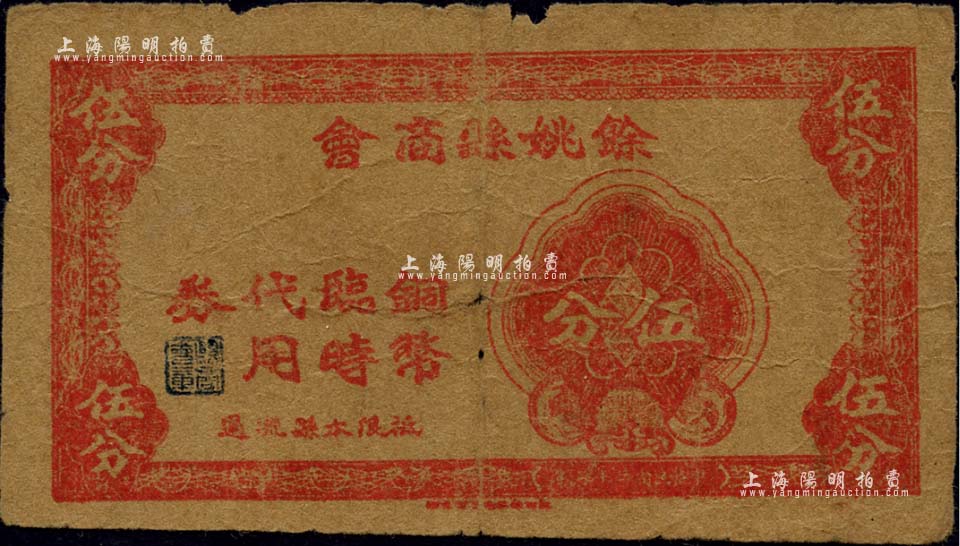 上海陽明拍賣
www.yangmingauction.com
伍分
伍分
餘姚縣商會
銅幣臨時代用券
伍分
上海陽明拍賣
www.yangmingauction.com
祗限本縣流通
伍分
伍分
上海陽明拍賣
www.yangmingauction.com